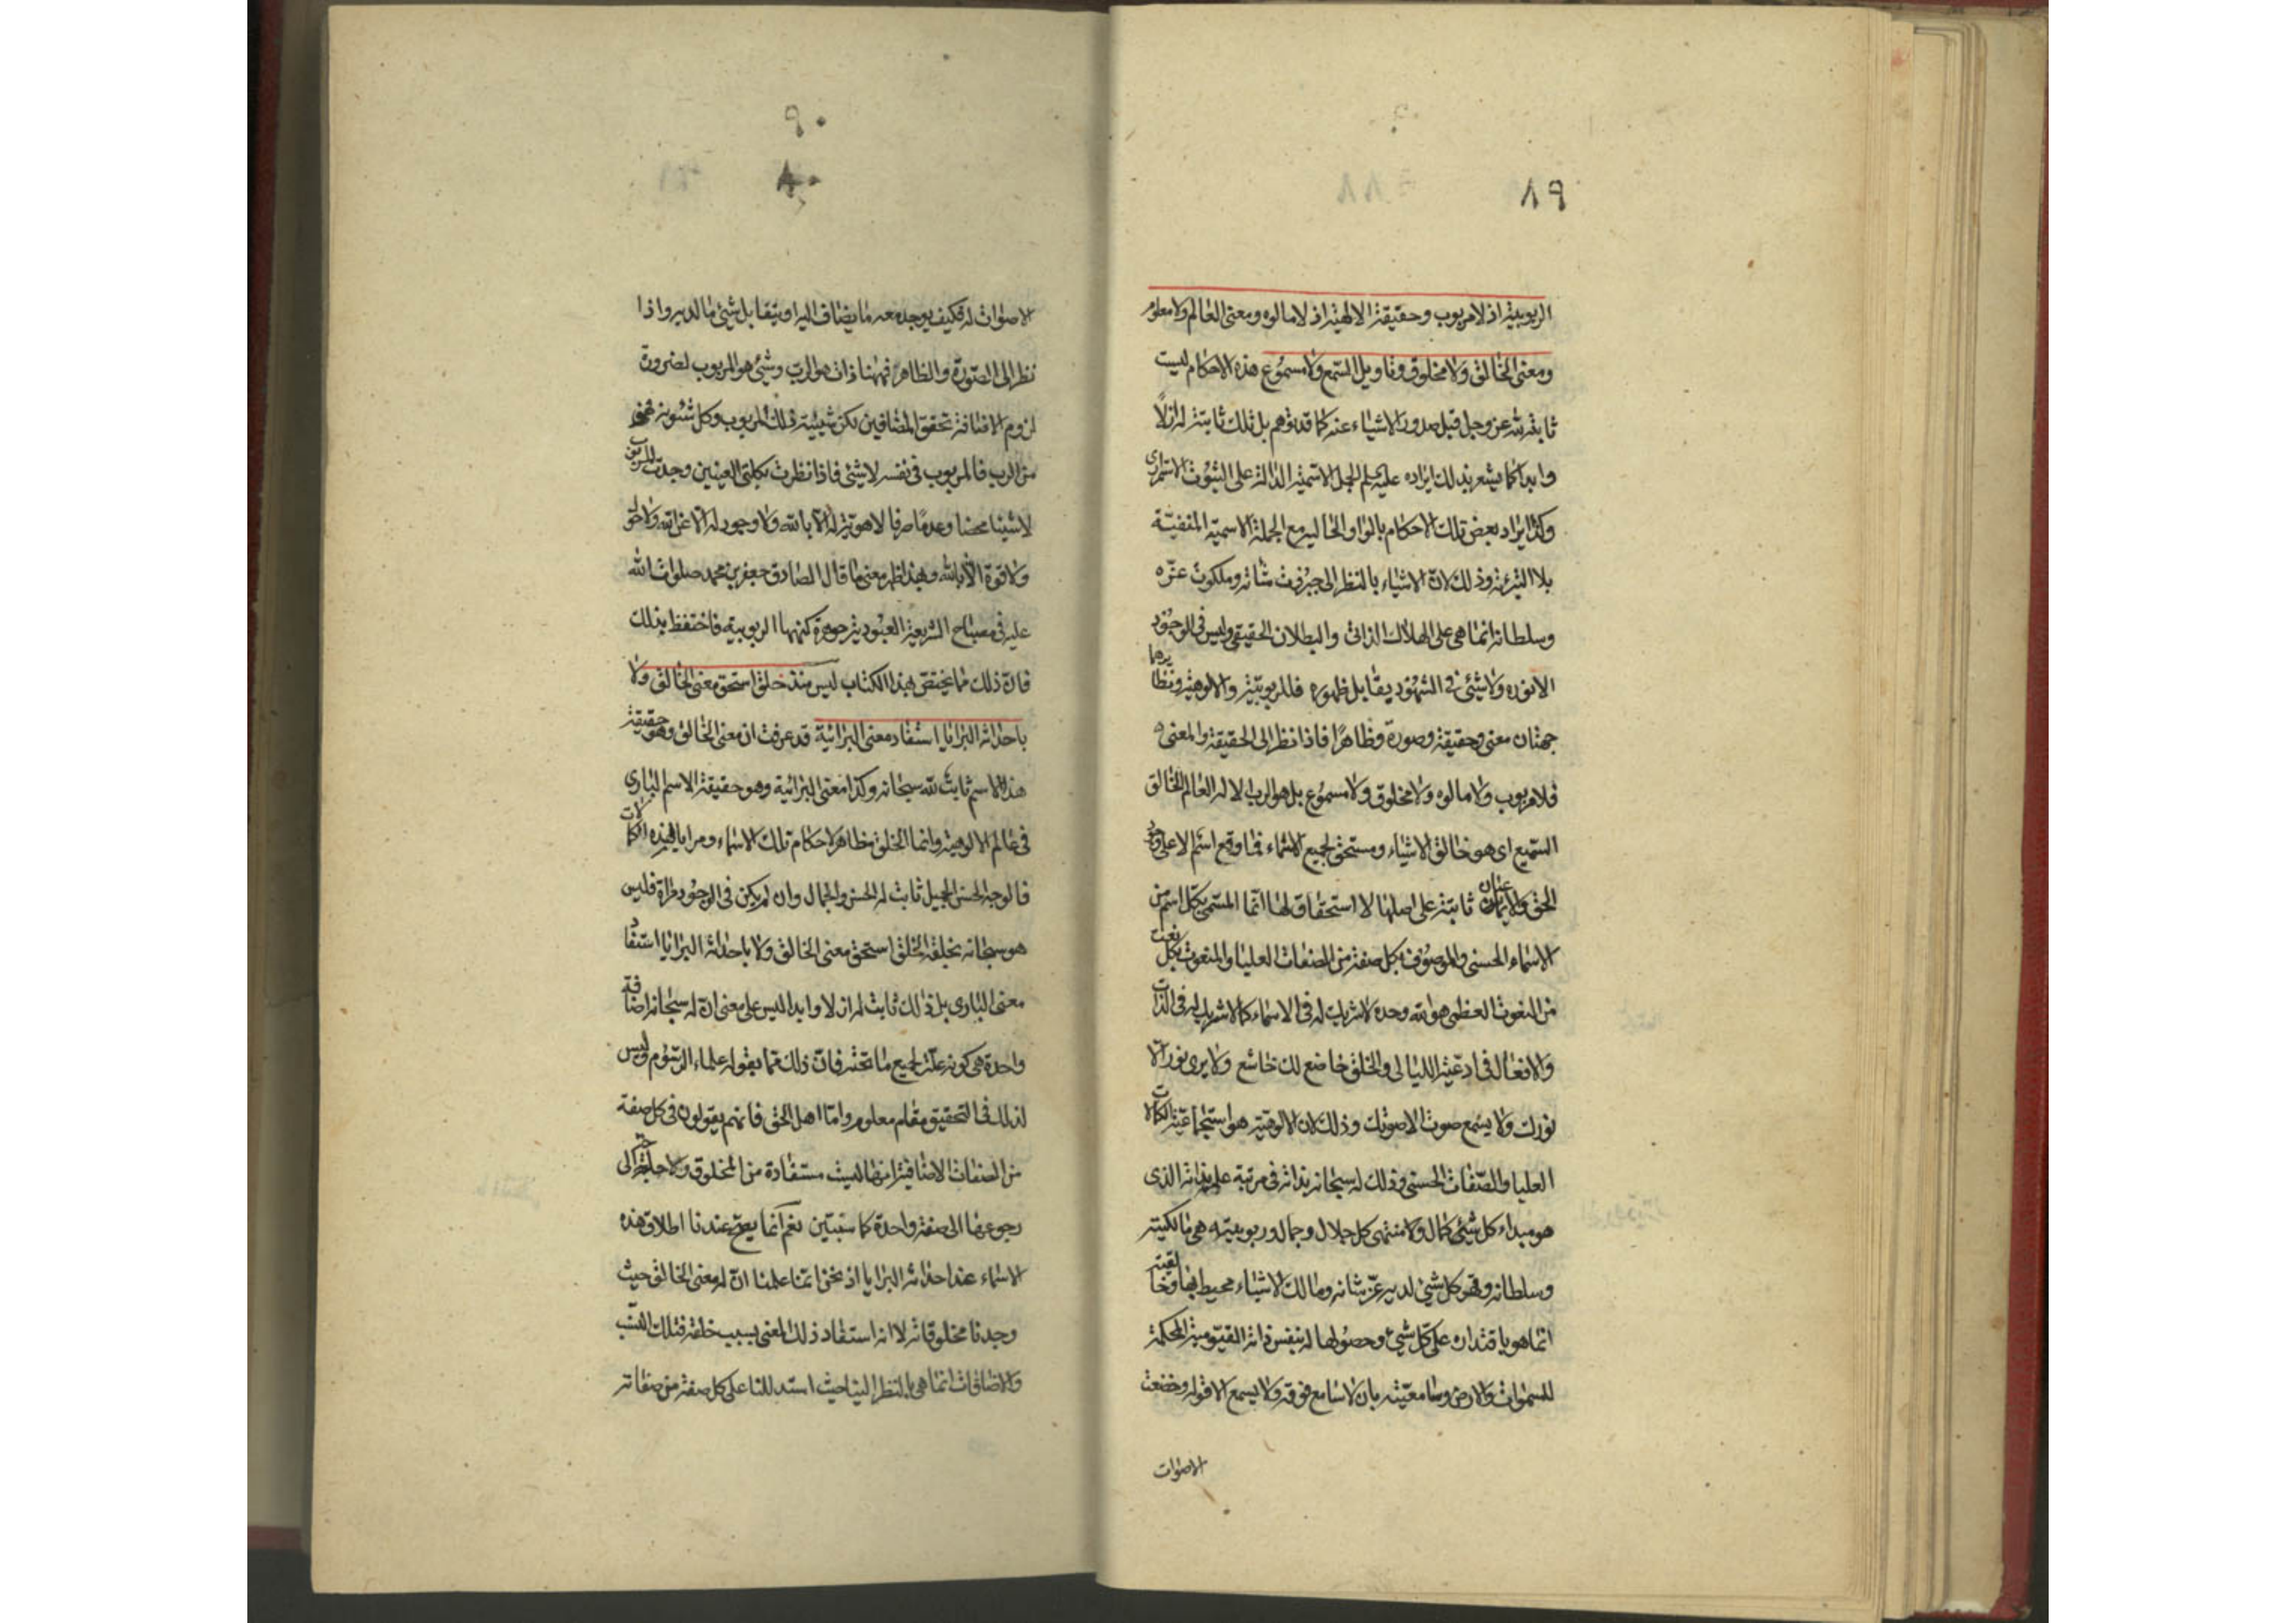 ٨٩
الربوبية اذ لا مربوب وحقيقة الالهية اذ لا مالوه ومعنى العالم ولا معلوم
ومعنى الخالق ولا مخلوق وتاويل السمع ولا مسموع هذه الاحكام ليست
ثابتة لله عز وجل قبل صدور الاشياء عنه كما قد توهم بل تلك ثابتة له ازلاً
وابدا كما يشعر بذلك ايراده عليه السلم الجمل الاسمية الدالة على الثبوت الاستمراري
وكذا ايراد بعض تلك الاحكام بالواو الحالية مع الجملة الاسمية المنفيّة
بلا التبرئة وذلك لانّ الاشياء بالنظر الى جبروت شانه وملكوت عزّه
وسلطانه انما هي على الهلاك الذاتي والبطلان الحقيقي وليس في الوجود
الا نوره ولا شيئ في الشهود يقابل ظهوره فللمربوبيّة والالوهية ونظايرهما
جهتان معنى وحقيقة وصورة وظاهرًا فاذا نظر الى الحقيقة والمعنى
فلا مربوب ولا مالوه ولا مخلوق ولا مسموع بل هو الرب الاله العالم الخالق
السميع اى هو خالق الاشياء ومستحق لجميع الاسماء فما وقع اسم الا على
الحق والاعيان ثابتة على اصلها لا استحقاق لها انّما المسمّى بكل اسم من
الاسماء الحسنى والموصوف بكل صفة من الصفات العليا والمنعوت بكل نعت
من النعوت العظمى هو الله وحده لا شريك له في الاسماء كما لا شريك له في الذات
والافعال في ادعية الليالى والخلق خاضع لك خاشع ولا يرى نور الّا
نورك ولا يسمع صوت الا صوتك وذلك لان الالوهية هو استجماعيّة الكمالات
العليا والصّفات الحسنى وذلك له سبحانه بذاته في مرتبة علمه بذاته الذى
هو مبداء كل شيئ كمال ولا منتهى كل جلال وجمال وربوبيته هى مالكيته
وسلطانه وقهر كل شيئ لدير عزّ شانه ومالك الاشياء محيط بها وخالقيته
انما هو باقتداره على كل شيئ وحصولها له بنفس ذاته القيّوميّة المحكمة
للسموات والارض وسامعيّته بان لا سامع فوقه ولا يسمع الا قوله وخضعت
الاصوات
٩٠
٨٠
الاصوات له فكيف يوجد معه ما يضاف اليه او يتقابل شيئ ما لديه واذا
نظر الى الصّورة والظاهر فههنا ذات هو الربّ وشيئ هو المربوب لضرورة
لزوم الاضافة تحقق المضافين لكن شيئية ذلك المربوب وكل شئونه
من الرب فالمربوب في نفسه لا شيئى فاذا نظرت بكلتى العينين وجدت المربوب
لا شيئا محضا وعدمًا صرفا لا هوية له الا بالله ولا وجود له الا من الله ولا حول
ولا قوة الا بالله وبهذا ظهر معنى ما قال الصادق جعفر بن محمد صلوات الله
عليه في مصباح الشريعة العبودية جوهرة كنهها الربوبية فاحتفظ بذلك
فانّ ذلك مما يختص بهذا الكتاب ليس منذ خلق استحق معنى الخالق ولا
باحداثه البرايا استفاد معنى البرائية قد عرفت ان معنى الخالق وهو حقيقة
هذا الاسم ثابت لله سبحانه وكذا معنى البرائية وهو حقيقة الاسم البارى
في عالم الالوهية وانما الخلق مظاهر لاحكام تلك الاسماء ومرايا لهذه الكمالات
فالوجه الحسن الجميل ثابت له الحسن والجمال وان لم يكن في الوجود مرآة فليس
هو سبحانه بخلقه الخلق استحق معنى الخالق ولا باحداثه البرايا استفاد
معنى البارى بل ذلك ثابت له ازلا وابدا ليس على معنى انّ له سبحانه اضافة
واحدة هى كونه علّة لجميع ما تحته فانّ ذلك مما يقوله علماء الرسوم وليس
لذلك في التحقيق مقام معلوم وامّا اهل الحق فانهم يقولون في كل صفة
من الصفات الاضافية انها ليست مستفادة من المخلوق ولا حاجة الى
رجوعها الى صفة واحدة كما ستبين نعم انما يصح عندنا اطلاق هذه
الاسماء عند احداثه البرايا اذ نحن انما علمنا انّ له معنى الخالق حيث
وجدنا مخلوقاته لا انه استفاد ذلك المعنى بسبب خلقه فتلك النسب
والاضافات انما هى بالنظر الينا حيث استدللنا على كل صفة من صفاته